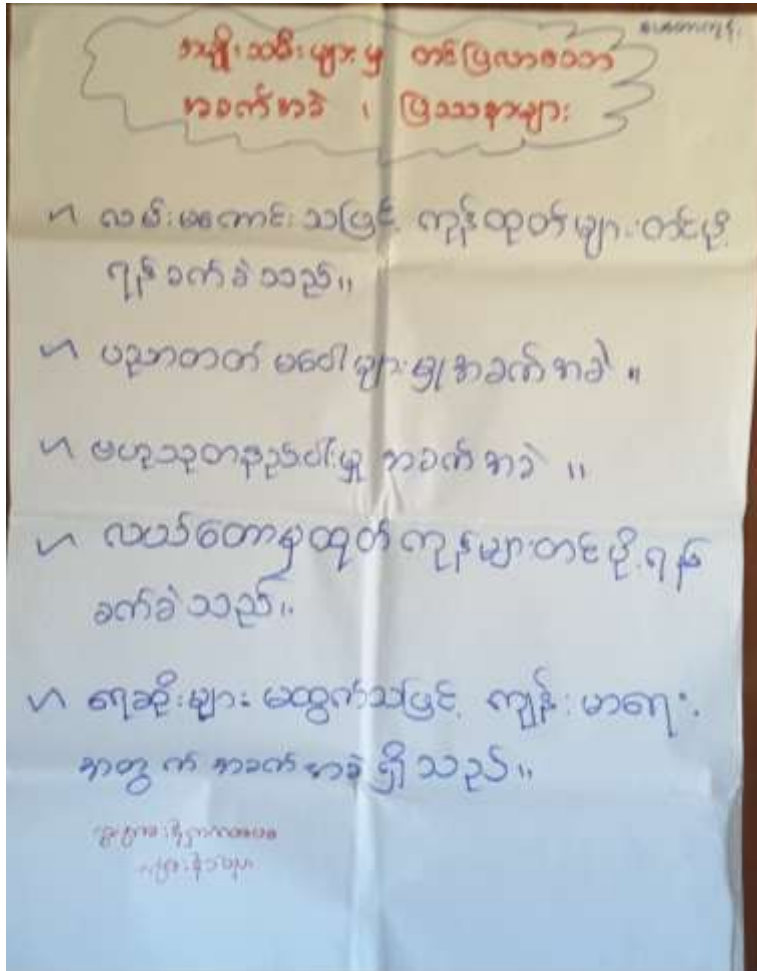 အမျိုးသမီးများမှ တင်ပြလာသော
အခက်အခဲ ၊ ပြဿနာများ
လမ်းမကောင်းသဖြင့် ကုန်ထုတ်များတင်ပို့
ရန်ခက်ခဲသည်။
ပညာတတ် မပေါများမှုအခက်အခဲ ။
ဗဟုသုတနည်းပါးမှု အခက်အခဲ ။
လယ်တောမှထုတ်ကုန်များတင်ပို့ရန်
ခက်ခဲသည်။
ရေဆိုးများ မထွက်သဖြင့် ကျန်းမာရေး
အတွက် အခက်အခဲရှိသည်။